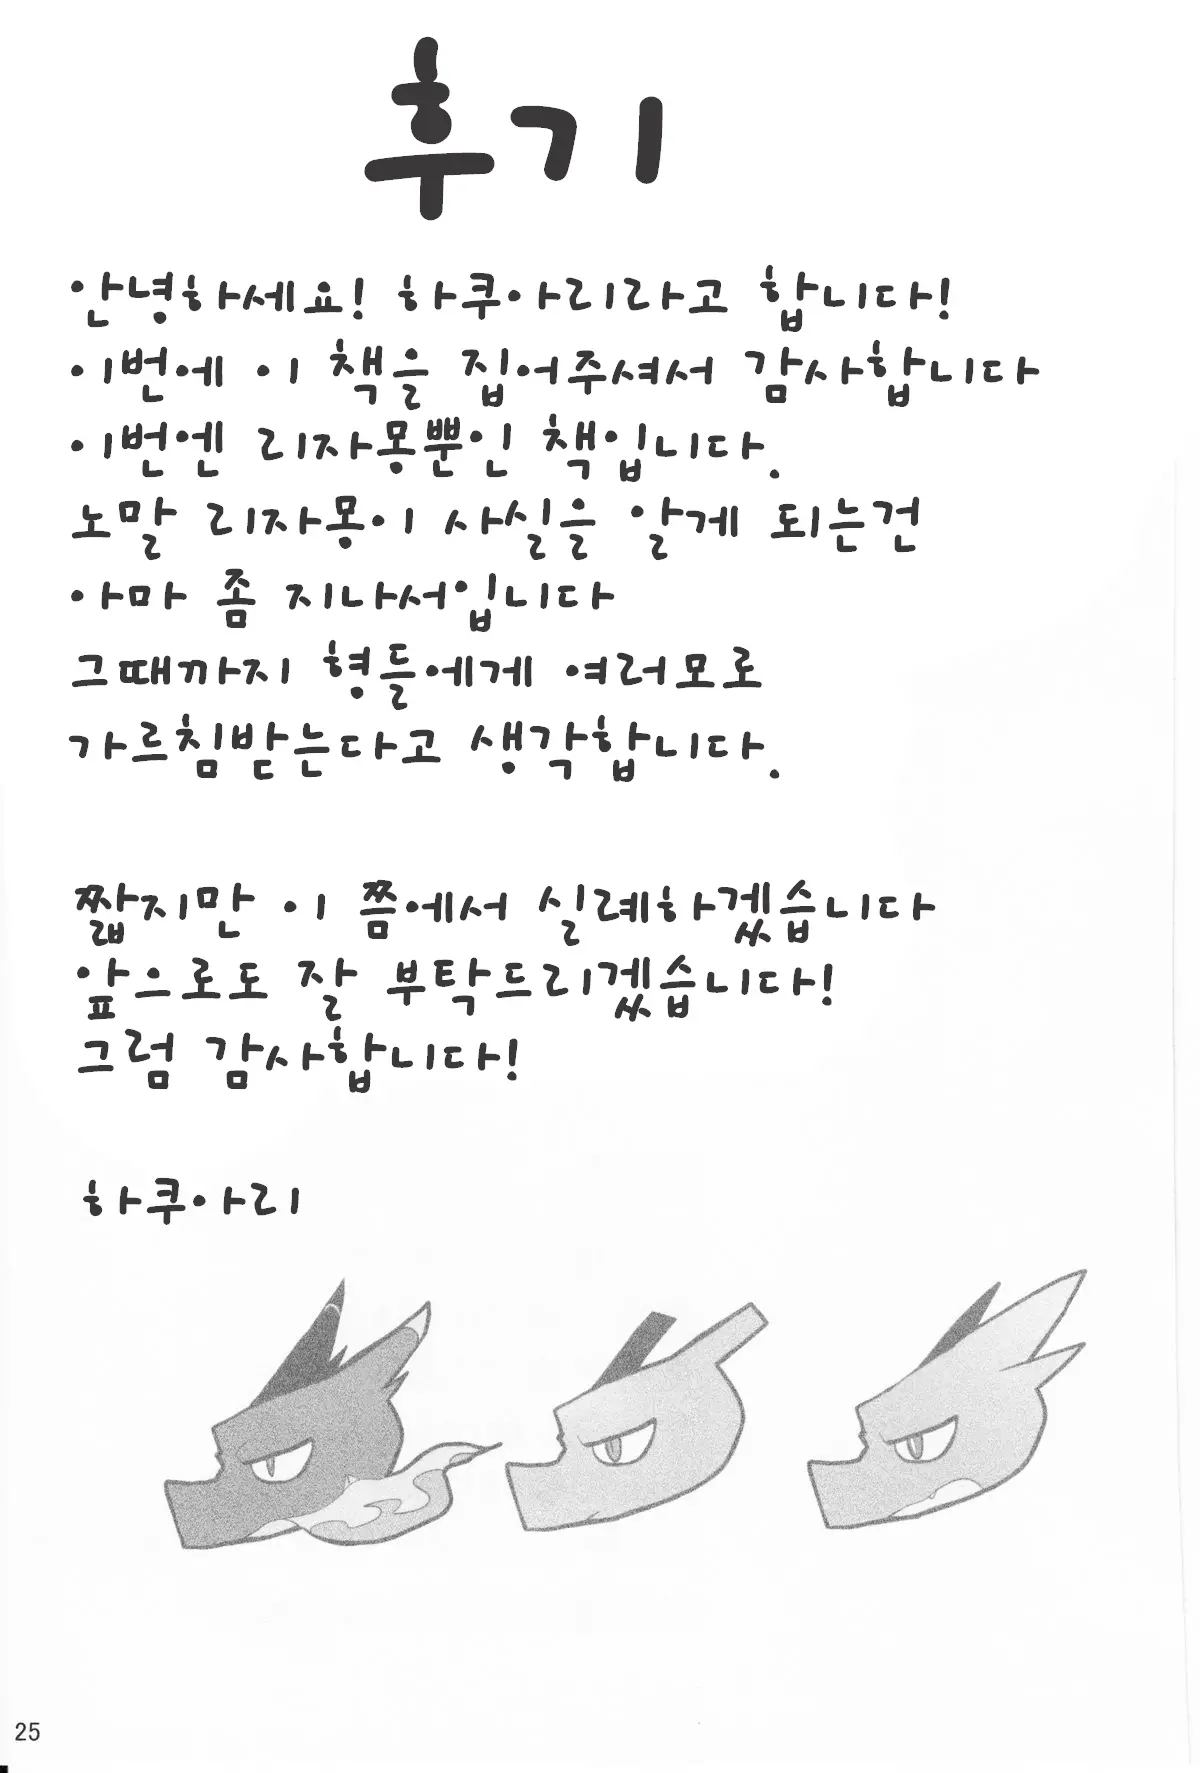 후기
안녕하세요! 하쿠아리라고 합니다!
이번에 이 책을 집어주셔서 감사합니다
이번엔 리자몽뿐인 책입니다.
노말 리자몽이 사실을 알게 되는건
아마 좀 지나서입니다
그때까지 형들에게 여러모로
가르침받는다고 생각합니다.
짧지만 이 쯤에서 실례하겠습니다
앞으로도 잘 부탁드리겠습니다!
그럼 감사합니다!
하쿠아리
25